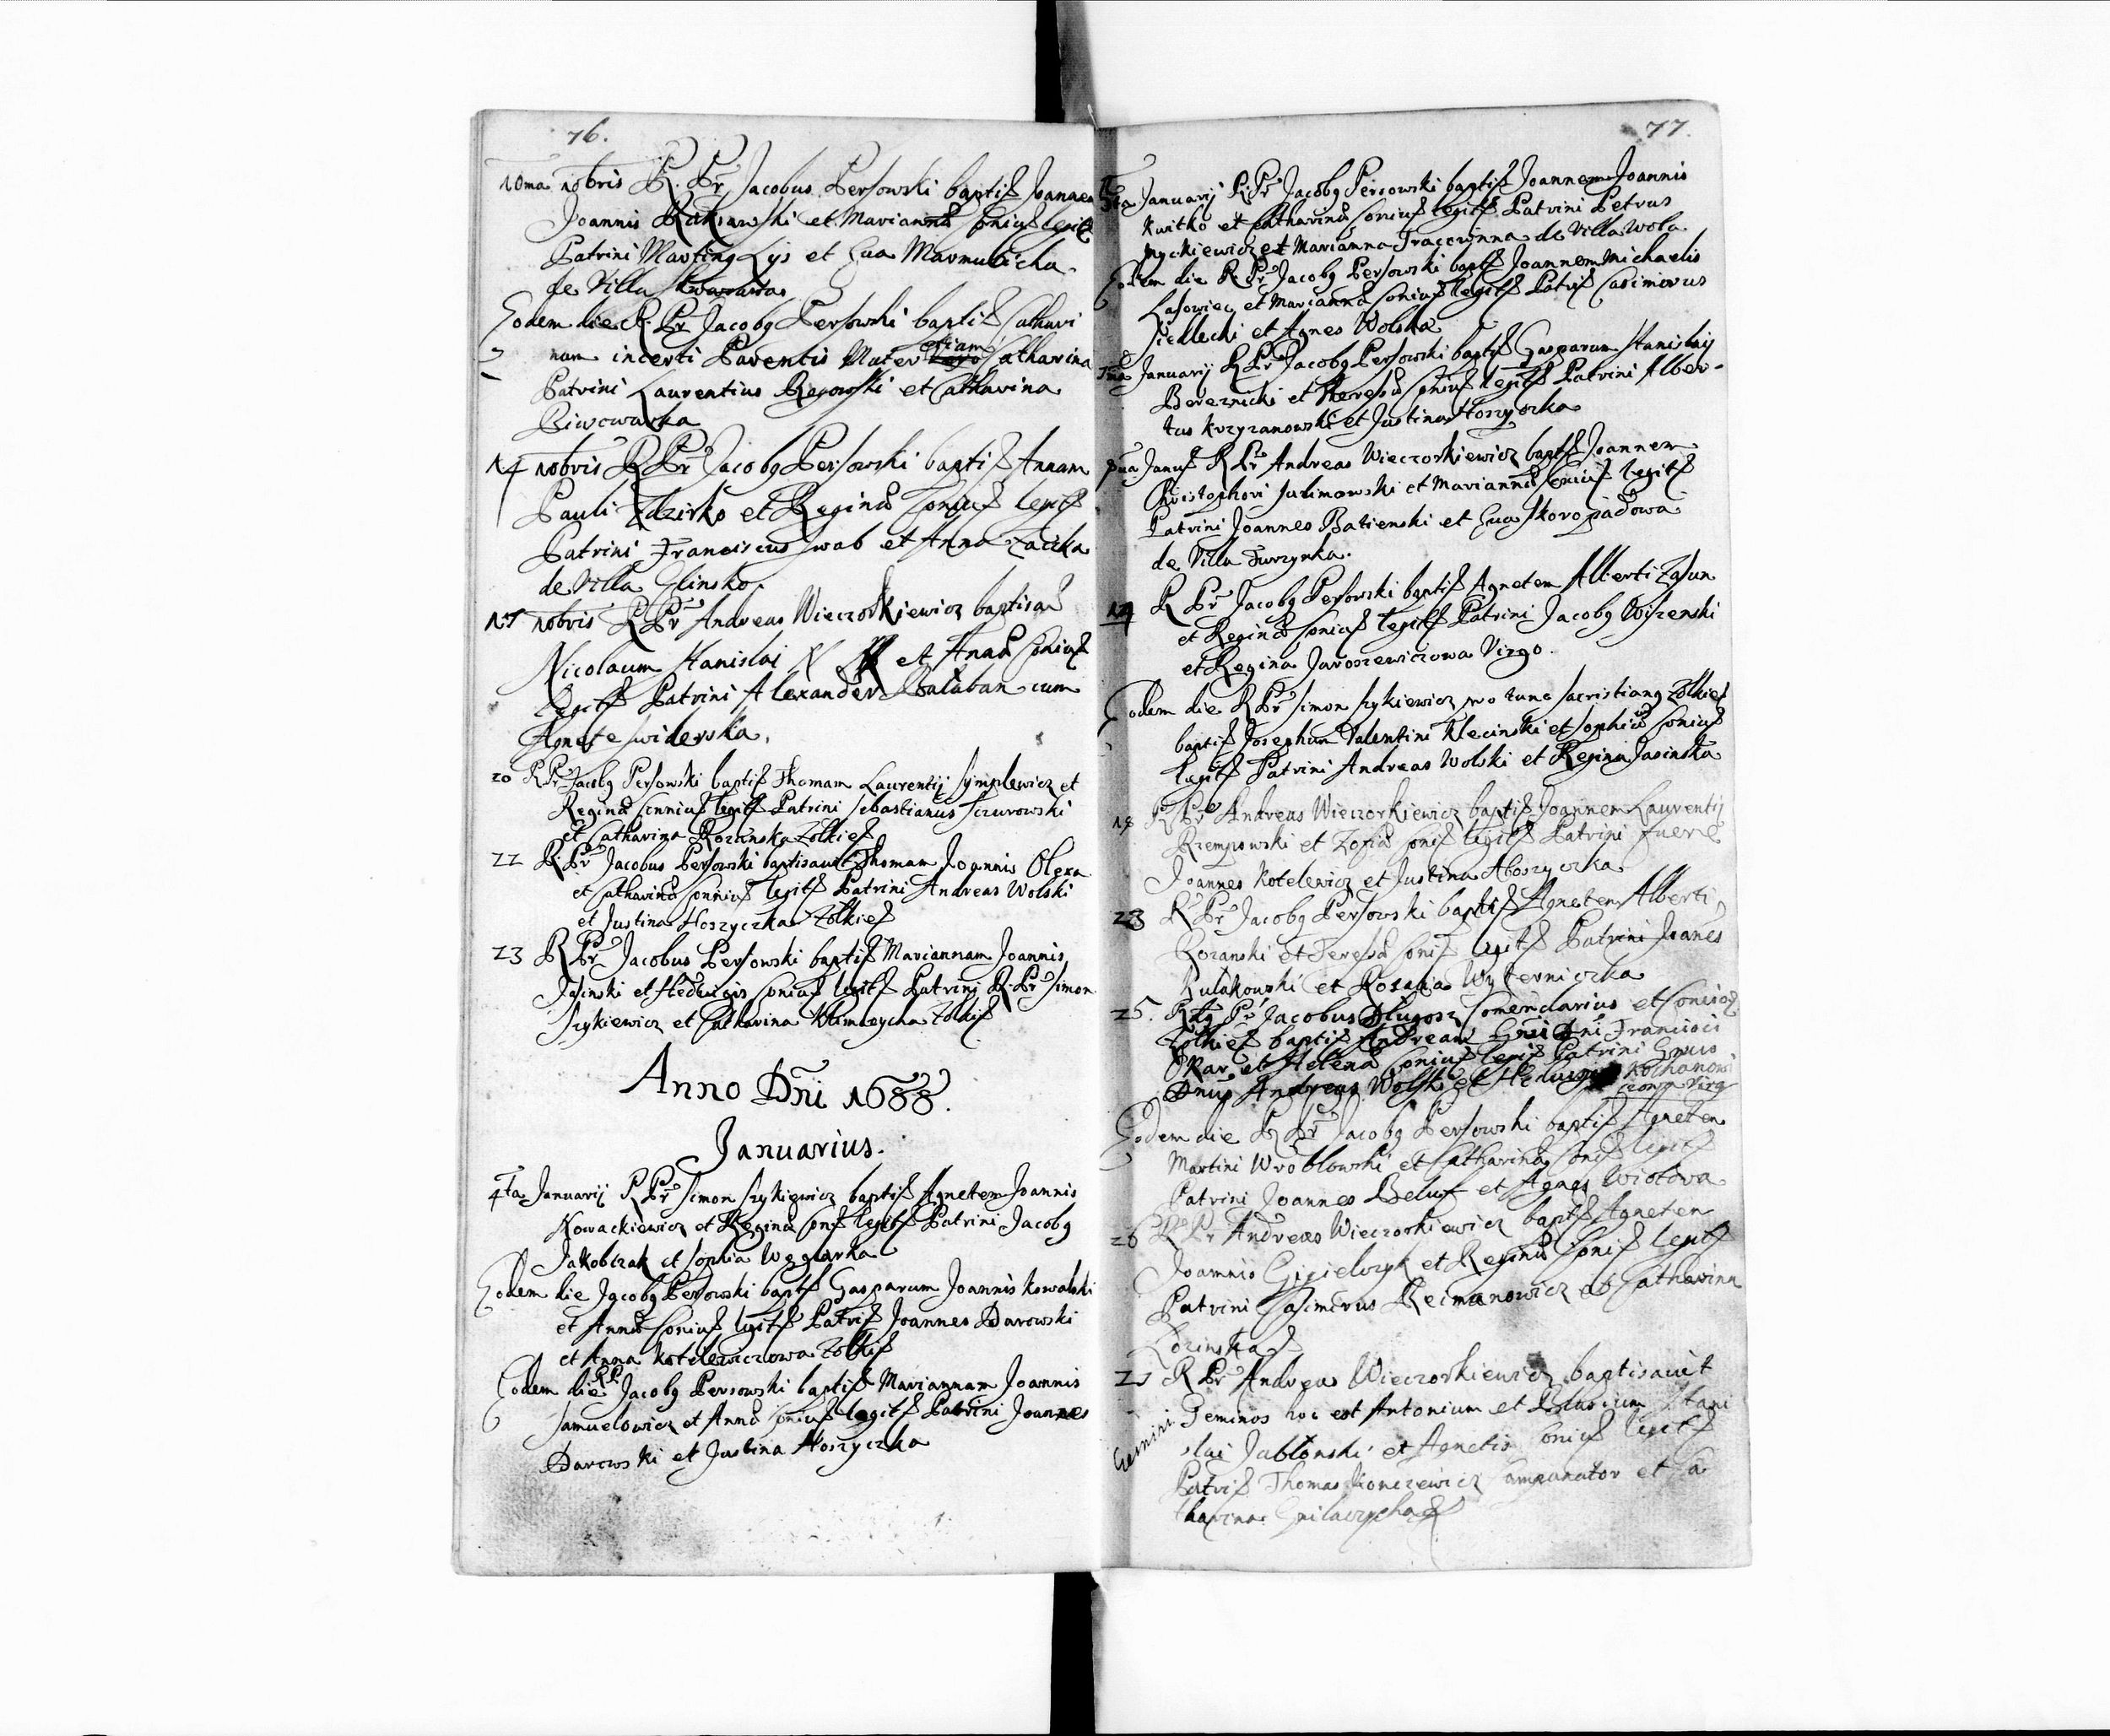 76.
10ma 10bris R. Pr Jacobus Persowski baptis Joannem
Joannis et Mariannæ Coniug legit
Patrini Marting Lys et Eua Marmulicha
de Villa Skwarzawa
Eodem die R. Pr Jacobg Persowski baptis Cathari
nam incerti Parentis Mater etiam Catharina
Patrini Laurentius et Catharina
Piwowarka
14 10bris R Pr Jacobg Persowski baptis Annam
Pauli et Reginæ Coniug legit
Patrini Franciscus Swab et Anna Zacka
de Villa Glinsko.
15 10bris R Pr Andreas Wieczorkiewicz baptisa
Nicolaum Stanislai N et Anæ Coniug
Legit Patrini Alexander Balaban cum
Agnete Swiderska.
20 R Pr Jacobg Persowski baptis Thomam Laurentij Symplewicz et
Reginæ Conniug legit Patrini Sebastianus Sczurowski
et Catharina Rozanska Zolkief
22 R. Pr Jacobus Persowski baptisauit Thomam Joannis Olexa
et Catharinæ Conniug legit Patrini Andreas Wolski
et Justina Hoszyczka Zolkief
23 R Pr Jacobus Persowski baptis Mariannam Joannis
Jasinski et Heduigis Coniug legit Patrini R. Pr Simon
Szykiewicz et Catharina Klimczycha Zolkif
Anno Dni 1688.
Januarius.
4ta Januarij R Pr Simon Szykiewicz baptis Agnetem Joannis
Nowackiewicz et Reginæ Coni legit Patrini Jacobg
Jakobczak et Sophia Węglarka
Eodem die Jacobg Persowski bapt Gasparum Joannis Kowalski
et Annæ Coniug legit Patri Joannes Darowski
et Anna Kotelewiczowa Zolkif
Eodem die RP Jacobg Persowski baptis Mariannam Joannis
Samuelowicz et Annæ Coniug legit Patrini Joannes
Darowski et Justina Hoszyczka
77.
Januarij R Pr Jacobg Persowski baptis Joannem Joannis
Kwitko et Catharinæ Coniug legit Patrini Petrus
Myckiewicz et Marianna Traczowna de Villa Wola
Eodem die R Pr Jacobg Persowski bapt Joannem Michaelis
Lasowiec et Mariannæ Coniug legit Patri Casimirus
Siedlecki et Agnes Wolska
Januarij R Pr Jacobg Persowski bapt Gasparum Stanislaij
Bereznicki et Theresæ Coniug legit Patrini Alber-
tus Krzyzanowski et Justina Hoszyczka
Janu R Pr Andreas Wieczorkiewicz bapt Joannem
Christophori Sulimowski et Mariannæ Coniug legit
Patrini Joannes Batienski et Eua Skoropadowa
de Villa Turzynka.
14 R Pr Jacobg Persowski baptis Agnetem Alberti Zasun
et Reginæ Coniug legit Patrini Jacobg Wizenski
et Regina Jaroszewiczowa Virgo.
Eodem die R Pr Simon Szykiewicz pro tunc Sacristiang Zolkief
baptis Josephum Valentini Klecinski et Sophiæ Coniug
legit Patrini Andreas Wolski et Regina Jasinska
18 R Pr Andreas Wieczorkiewicz baptis Joannem Laurentij
Rzempowski et Zofiæ Coni legit Patrini fuere
Joannes Kotelewicz et Justina Hoszyczka
23 R Pr Jacobg Persowski baptis Agnetem Alberti
Rozanski et Teresæ Coni legit Patrini Joanes
Kulakowski et Rosalia Wyterniczka
25. Pr Jacobus Dlugosz Comendarius et Concio
Zolkief baptis Andream Gnsi Dni Francisci
Skar et Helenæ Coniug legit Patrini Gnsus
Dnus Andreas Wolski et Heduig Kochanowi
czowa Virg
Eodem die R Pr Jacobg Persowski baptis Agnetem
Martini Wroblowski et Catharinæ Coni legit
Patrini Joannes Beluf et Agnes Wiotowa
26 R Pr Andreas Wieczorkiewicz bapt Agneten
Joannis et Reginæ Coni legit
Patrini Casimirus Reimanowicz et Catharina
Lozinska
R Pr Andreas Wieczorkiewicz baptisauit
Gemini Geminos hoc est Antonium et Stani
slai Jablonski et Agnetis Coniug legit
Patri Thomas Konczewicz Campanator et Ca
tharina